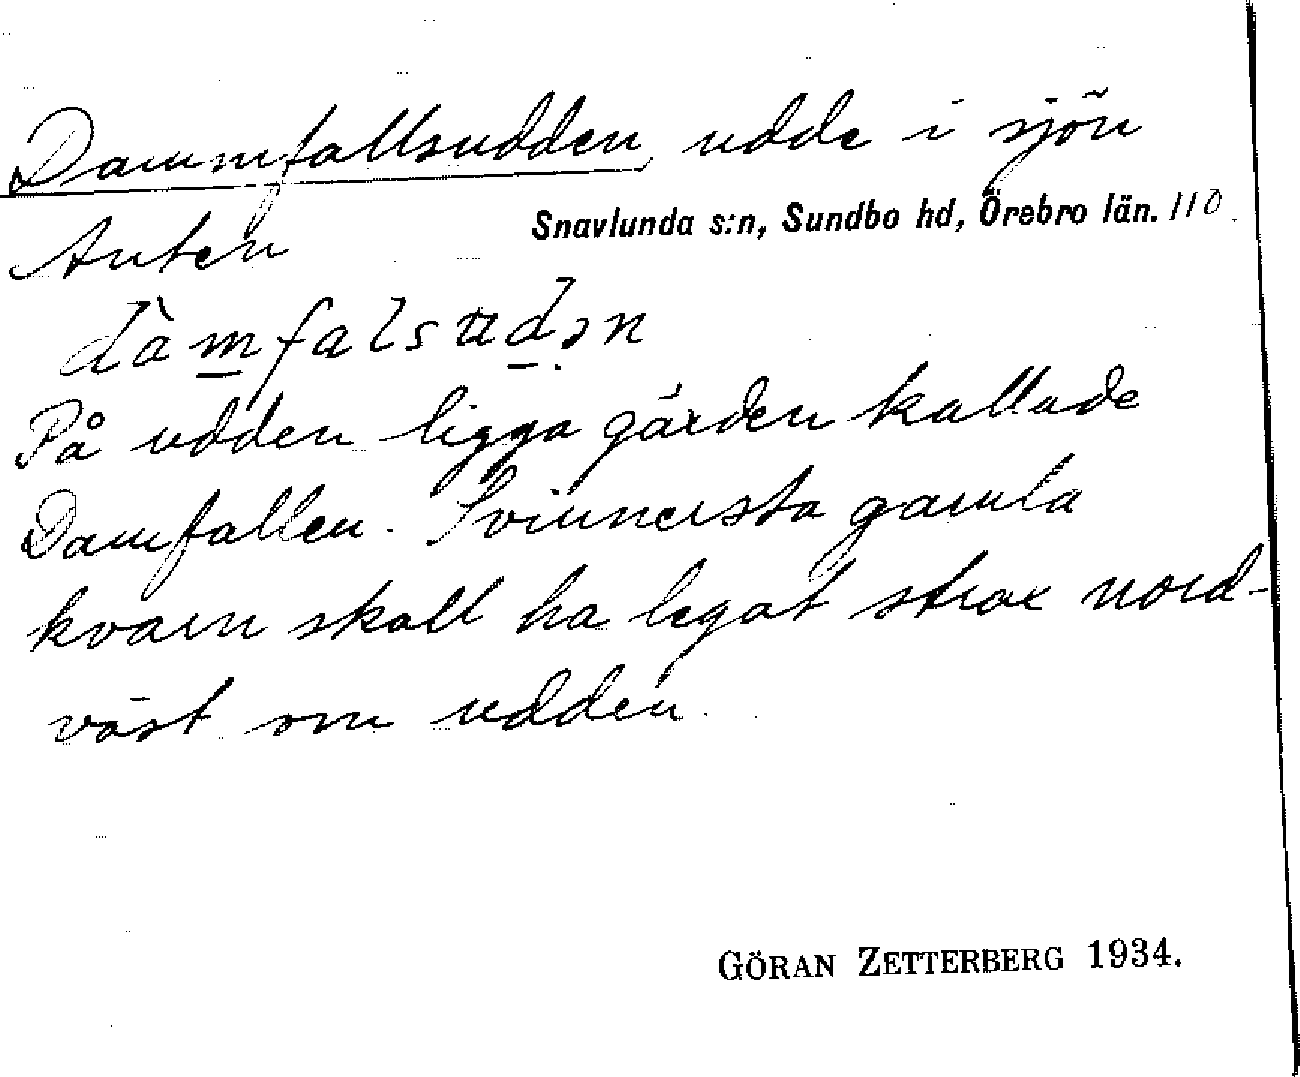 Dammfallsudden, udde i sjön
Snavlunda s:n, Sundbo hd, Örebro län. 110.
Anten
dàm̲falsʉd̲ən
På udden ligga gärden kallade
Damfallen. Svinnersta gamla
kvarn skall ha legat strax nord-
väst om udden.
GÖRAN ZETTERBERG 1934.